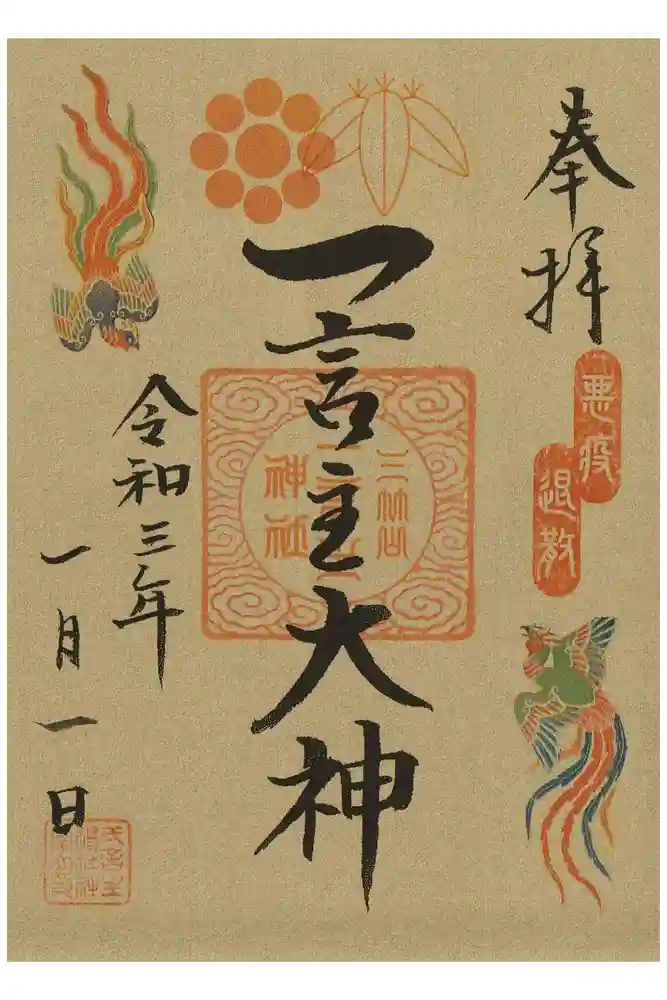 奉拝
悪疫
退散
一言主大神
三竹
神社
令和三年
一月一日